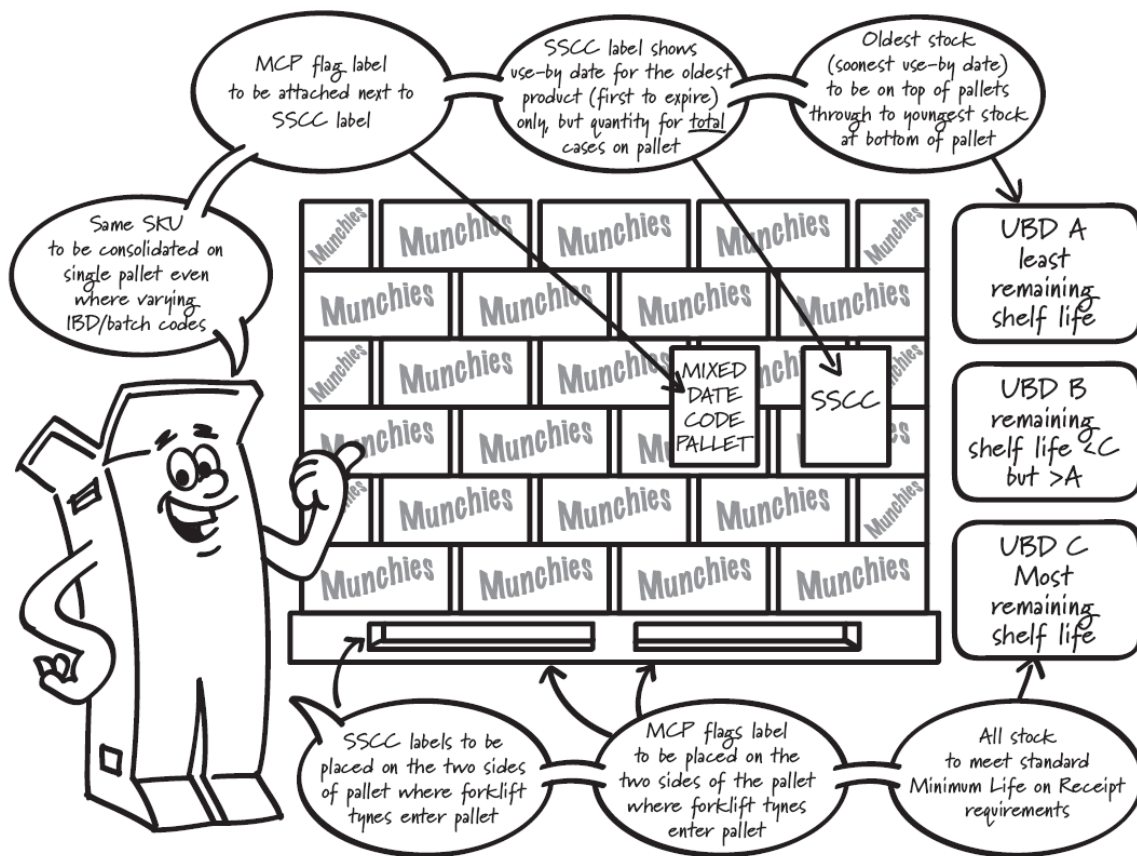 MCP flag label
to be attached next to
SSCC label
SSCC label shows
use-by date for the oldest
product (first to expire)
only, but quantity for total
cases on pallet
Oldest stock
(soonest use-by date)
to be on top of pallets
through to youngest stock
at bottom of pallet
Same SKU
to be consolidated on
single pallet even
where varying
IBD/batch codes
Munchies Munchies Munchies Munchies Munchies
Munchies Munchies Munchies Munchies
Munchies Munchies Munchies
MIXED
DATE
CODE
PALLET
SSCC
Munchies Munchies Munchies
Munchies Munchies Munchies Munchies
Munchies Munchies Munchies Munchies
UBD A
least
remaining
shelf life
UBD B
remaining
shelf life <C
but >A
UBD C
Most
remaining
shelf life
SSCC labels to be
placed on the two sides
of pallet where forklift
tynes enter pallet
MCP flags label
to be placed on the
two sides of the pallet
where forklift tynes
enter pallet
All stock
to meet standard
Minimum Life on Receipt
requirements